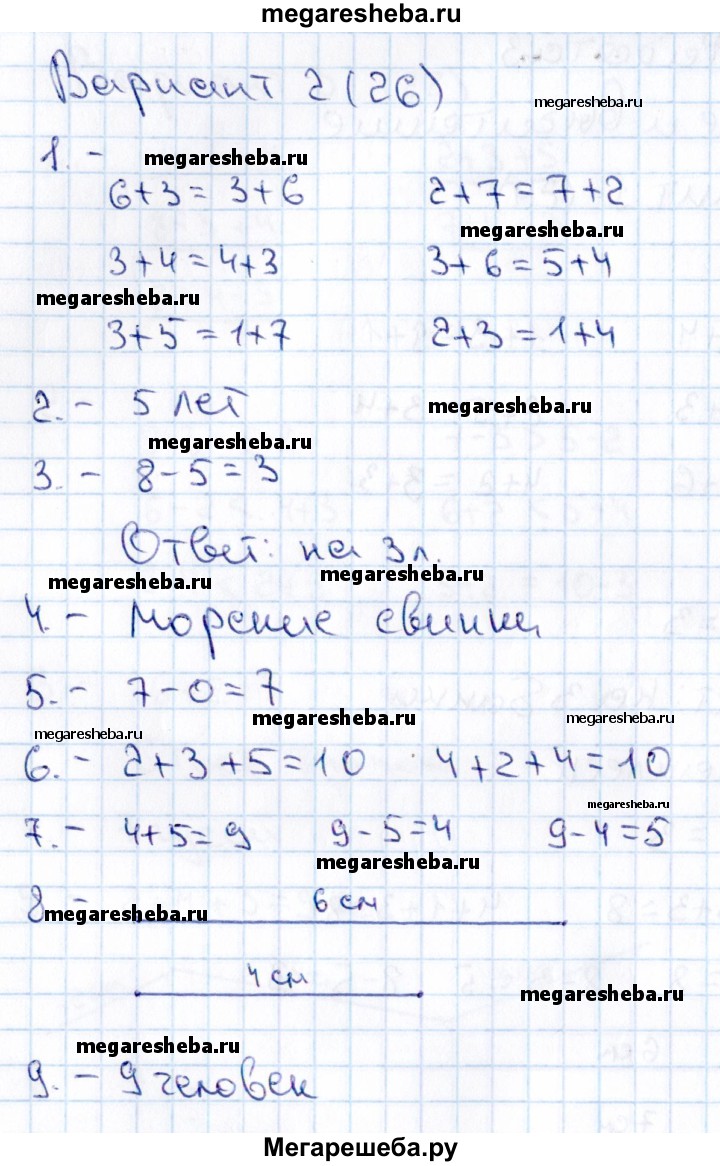 megaresheba.ru
Вариант 2 (26)
megaresheba.ru
1. -
megaresheba.ru
6+3 = 3+6 2+7 = 7+2
megaresheba.ru
3+4 = 4+3 3+6 = 5+4
megaresheba.ru
3+5 = 1+7 2+3 = 1+4
2. - 5 лет
megaresheba.ru
megaresheba.ru
3. - 8-5=3
Ответ: на 3 л.
megaresheba.ru
megaresheba.ru
4. - морские свинки
5. - 7-0=7
megaresheba.ru
megaresheba.ru
megaresheba.ru
6. - 2+3+5=10 4+2+4=10
megaresheba.ru
7. - 4+5=9 9-5=4 9-4=5
megaresheba.ru
8 - 6 см
megaresheba.ru
4 см
megaresheba.ru
megaresheba.ru
9. - 9 человек
Мегарешеба.ру